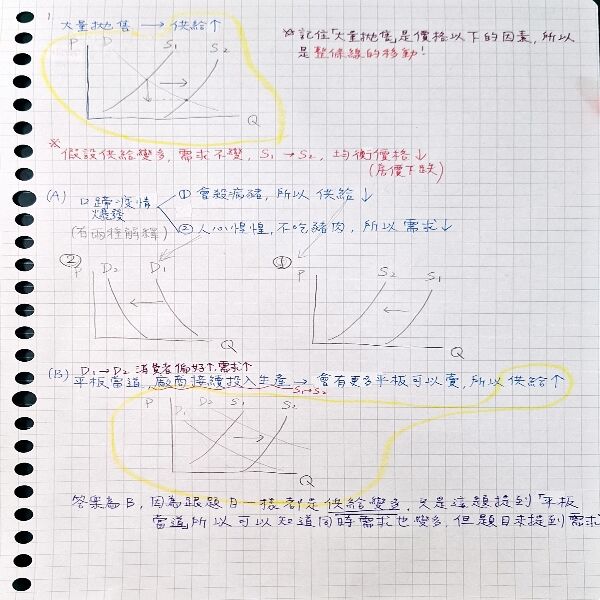 1 大量拋售 → 供給↑
※記住「大量拋售」是價格以下的因素,所以
是整條線的移動!
P D S₁ S₂
Q
※假設供給變多,需求不變, S₁→S₂, 均衡價格↓
(房價下跌)
(A) 口蹄疫情爆發 ① 會殺病豬,所以 供給↓
(有兩種解釋) ② 人心惶惶,不吃豬肉,所以 需求↓
② D₂ D₁
Q
① P S₂ S₁
Q
D₁→D₂ 消費者偏好↑,需求↑
(B) 平板當道,廠商接續投入生產 → 會有更多平板可以賣,所以 供給↑
S₁→S₂
P D₁ D₂ S₁ S₂
Q
答案為B,因為跟題目一樣都是供給變多,只是這題提到「平板
當道」所以可以知道同時需求也變多,但題目未提到需求